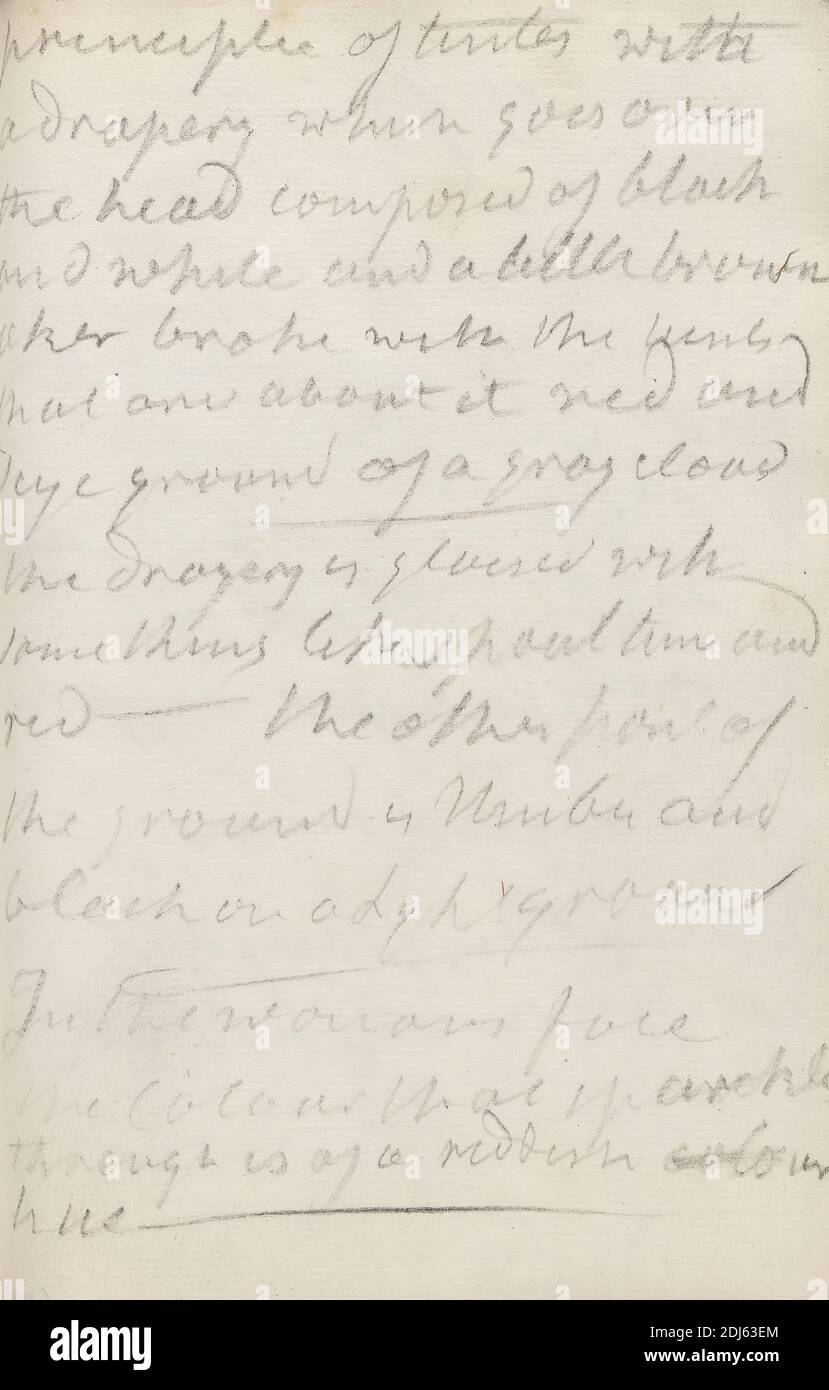 principle of tints with
a drapery which goes over
the head composed of black
and white and a little brown
oker broke with the tints
that are about it red and
ground of a gray cloud
the drapery is glased with
something like and
red — the other part of
the ground is Umber and
black on a Light ground
In the womans face
the Colour that sparkle
through is of a reddish colour
hue —
alamy
Image ID: 2DJ63EM
www.alamy.com